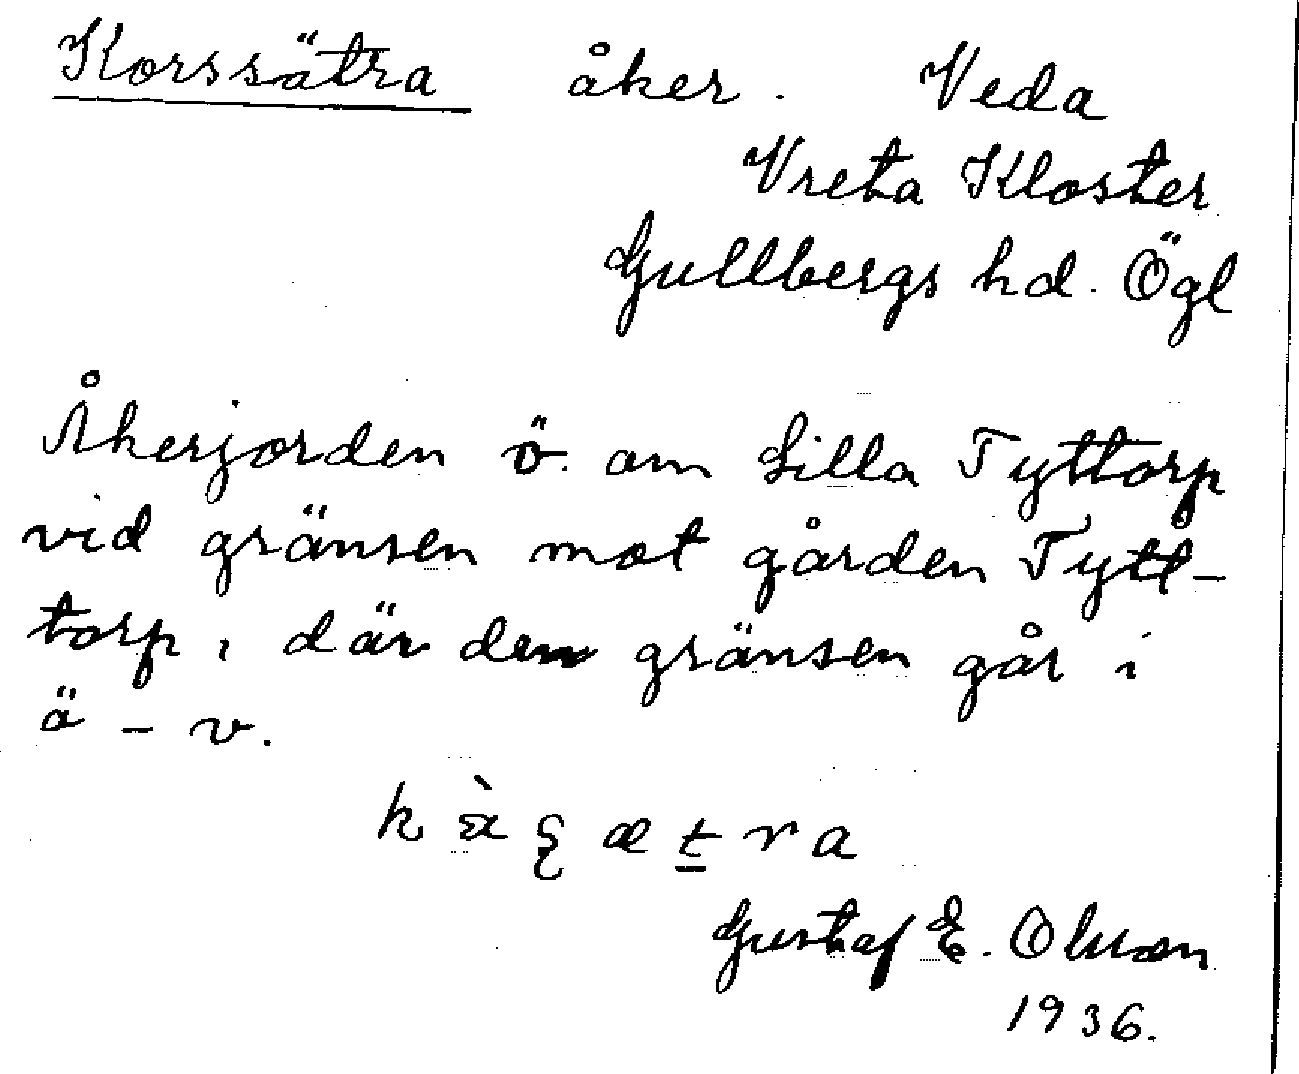 Korssätra åker. Veda
Vreta Kloster
Gullbergs hd. Ögl
Åkerjorden ö. om Lilla Tyttorp
vid gränsen mot gården Tytt-
torp, där den gränsen går i
ö - v.
Gustaf E. Olsson
1936.